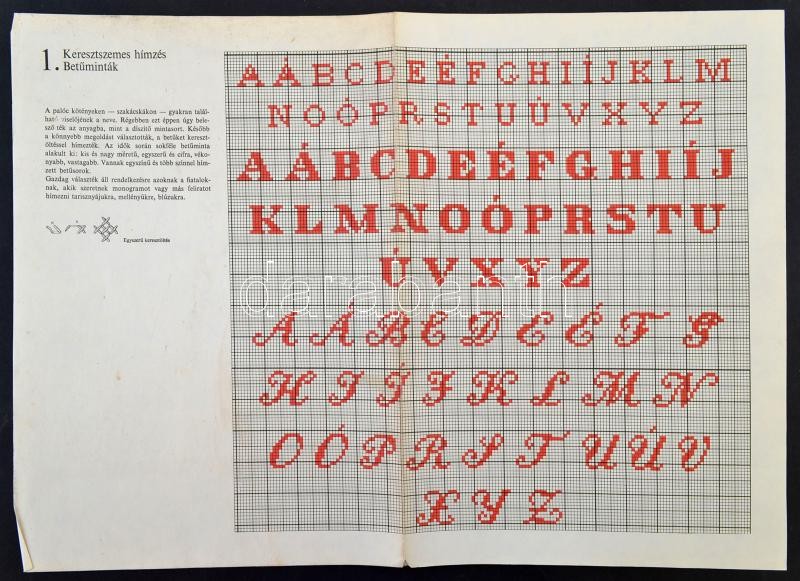 1. Keresztszemes hímzés
Betűminták
A palóc kötényeken — szakácskákon — gyakran talál-
ható viselőjének a neve. Régebben ezt éppen úgy bele-
szőtték az anyagba, mint a díszítő mintasort. Később
a könnyebb megoldást választották, a betűket kereszt-
öltéssel hímezték. Az idők során sokféle betűminta
alakult ki: kis és nagy méretű, egyszerű és cifra, véko-
nyabb, vastagabb. Vannak egyszínű és több színnel hím-
zett betűsorok.
Gazdag választék áll rendelkezésre azoknak a fiatalok-
nak, akik szeretnek monogramot vagy más feliratot
hímezni tarisznyájukra, mellényükre, blúzukra.
Egyszerű keresztöltés
A Á B C D E É F G H I Í J K L M
N O Ó P R S T U Ú V X Y Z
A Á B C D E É F G H I Í J
K L M N O Ó P R S T U
Ú V X Y Z
A Á B C D E É F G
H I Í J K L M N
O Ó P R S T U Ú V
X Y Z
darabanth